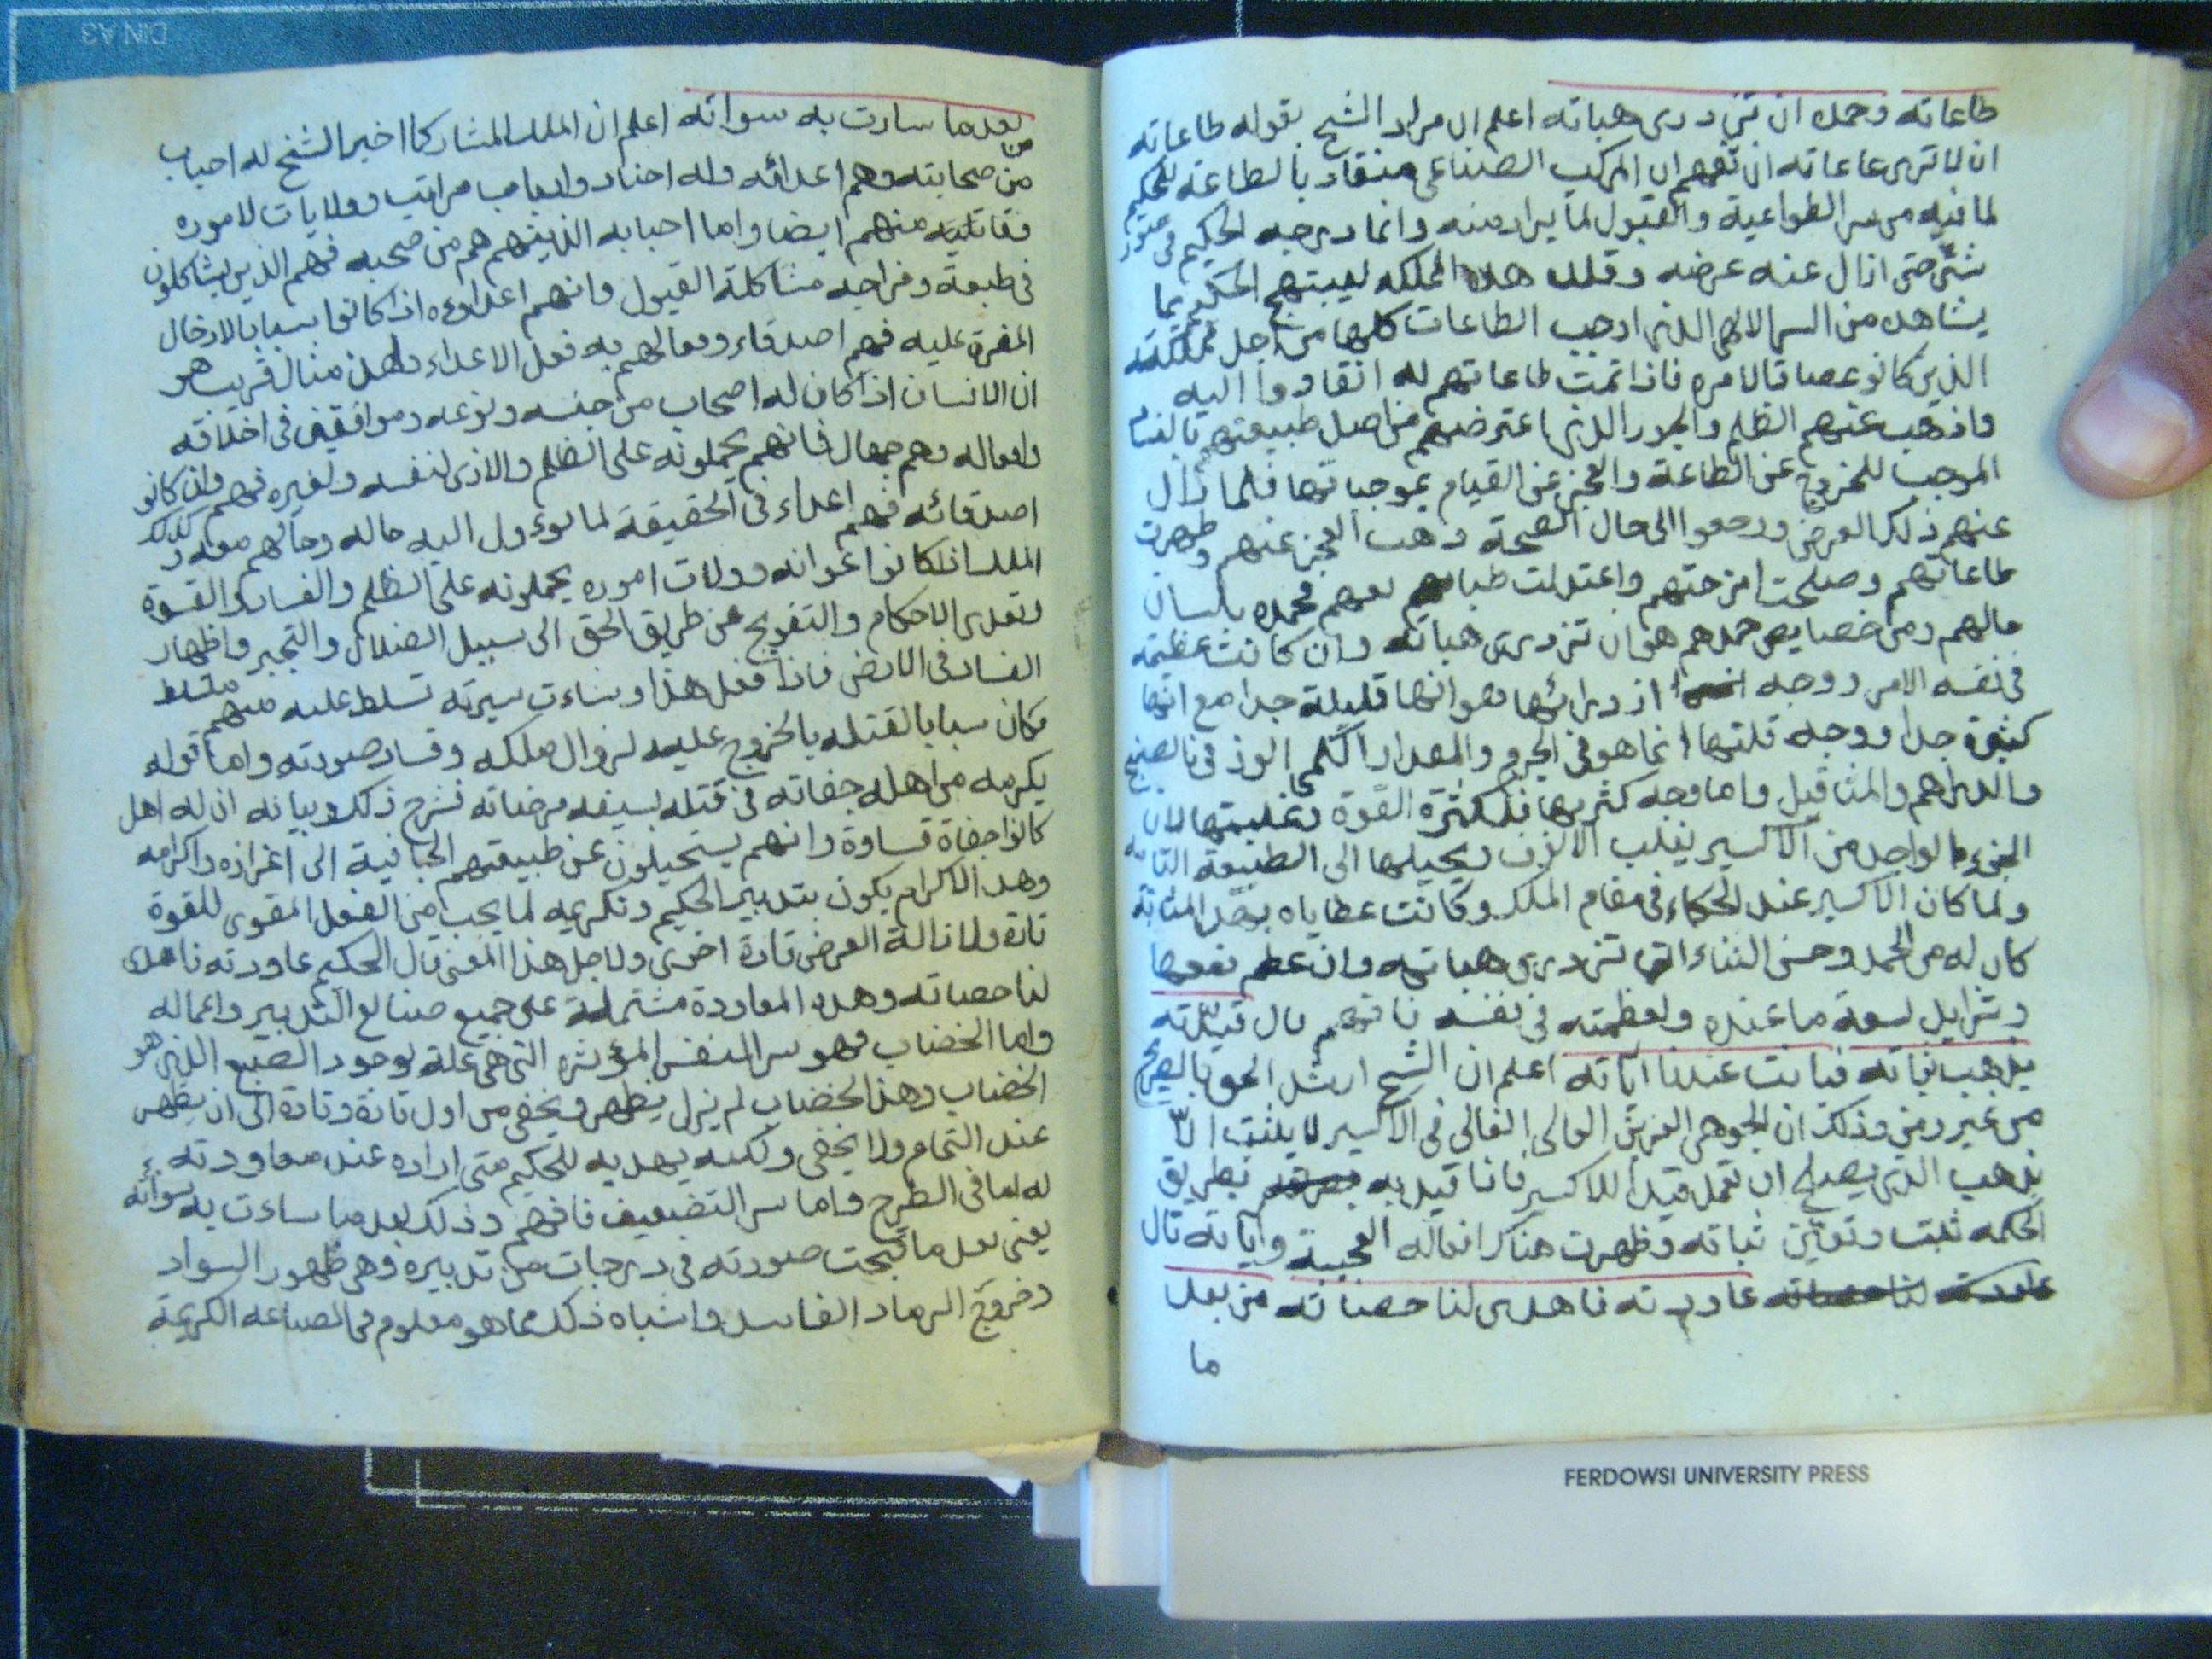 طاعاته وحمده ان تزدرى هباته اعلم ان مراد الشيخ بقوله طاعاته
ان لا ترى طاعاته ان تفهم ان المركب الصناعى منقاد بالطاعة للحكيم
لما فيه من سر الطواعية والقبول لما يراد منه وانما درجه الحكيم فى
شئ حتى ازال عنه عرضه وقلد هذه المملكه ليبتهج الحكيم بما
يشاهد من السر الالهى الذى اوجب الطاعات كلها من اجل مملكته
الذين كانو عصاة لامره فاذا تمت طاعاتهم له انقادوا اليه
واذهب عنهم الظلم والجور الذى اعترضهم من اصل طبيعتهم
الموجب للخروج عن الطاعة والعجز عن القيام بموجباتها فلما زال
عنهم ذلك العرض ورجعوا الى حال الصحة ذهب العجز عنهم وظهرت
طاعاتهم وصلحت امزجتهم واعتدلت طبايعهم فحمده بلسان
حالهم ومن خصايص حمدهم هو ان تزدرى هباته وان كانت عظيمة
فى نفسه الامر ووجه ازدرائها هو انها قليلة جدا مع انها
كثيرة جدا ووجه قلتها انما هو فى الجرم والمقدار الكمى الوزنى
والدراهم والمثاقيل واما وجه كثرتها فلكثرة القوة وغلبتها لان
الجزء الواحد من الاكسير يغلب الالوف ويحيلها الى الطبيعة
ولما كان الاكسير عند الحكماء فى مقام الملك وكانت عطاياه بهذا المثابة
كان له من الحمد وحسن الثناء التى تزدرى هباته وان عظم نفعها
وتتزايل لسعة ما عنده ولعظمته فى نفسه فافهم قال قيدته
بذهب نباته فبانت عندنا اياته اعلم ان الشيخ ارشد الحق بالصريح
من غير رمز وذلك ان الجوهر الفرش العالى الغالى فى الاكسير لا يثبت الا
بذهب الذى يصلح ان تعمل قيدا للاكسير فاذا قيد به بطريق
الحكمه ثبتت وتعين ثباته وظهرت هناك افعاله العجيبة واياته قال
عاودته فاهدى لنا حصاته من بعد
ما
بعد ما سارت به سواته اعلم ان الملك المشار كما اخبر الشيخ له احباب
من
من صحابته وهم اعدائه وله اجناد وارباب مراتب وولايات لاموره
وقاتليه منهم ايضا واما احبابه الذينهم هم من صحبه فهم الذين يشاكلون
فى طبعه ومزاجه مشاكلة القبول وانهم اعداؤه اذ كانوا سببا لادخال
المضرة عليه فهم اصدقاء وفعالهم به فعل الاعداء ولهذا مثال قريب هو
ان الانسان اذا كان له اصحاب من جنسه ونوعه وموافقين فى اخلاقه
وافعاله وهم جهال فانهم يحملونه على الظلم والاذى لنفسه ولغيره فهم وان كانو
اصدقائه فهم اعداء فى الحقيقة لما يوءول اليه حاله وحالهم معه وكذلك
الملك اذا كانوا اعوانه وولات اموره يحملونه على الظلم والفساد والقسوة
وتعدى الاحكام والتعويج عن طريق الحق الى سبيل الضلال والتجبر واظهار
الفساد فى الارض فاذا فعل هذا وساءت سيرته تسلط عليه منهم متسلط
فكان سببا لقتله بالخروج عليه لزوال ملكه وفساد صورته واما قوله
يكرمه من اهله جفاته فى قتله بسيفه مرضاته نشرح ذلك وبيانه ان له اهل
كانوا جفاة قساوة وانهم يستحيلون عن طبيعتهم الجافية الى اعزازه واكرامه
وهذا الاكرام يكون بتدبير الحكيم وتكريمه لما يجب من الفعل المقوى للقوة
تارة ولازالة العرض تارة اخرى ولاجل هذا المعنى قال الحكيم عاودته فاهدى
لنا حصاته وهذه المعاودة مشتملة على جميع صنايع التدبير واعماله
واما الخضاب فهو سر النفس المؤثرة التى هى علة لوجود الصبغ الذى هو
الخضاب وهذا الخضاب لم يزل يظهر ويخفى من اول تارة وتارة الى ان يظهر
عند التمام ولا يخفى ولكنه يهديه للحكيم متى اراده عند معاودته
له اما فى الطرح واما سر التضعيف فافهم وذلك بعد ما ساءت به سوأته
يعنى بعد ما قبحت صورته فى درجات من تدبيره وهى ظهور السواد
وخروج الرماد الفاسد واشباه ذلك مما هو معلوم فى الصناعه الكريمة
FERDOWSI UNIVERSITY PRESS
DIN A3